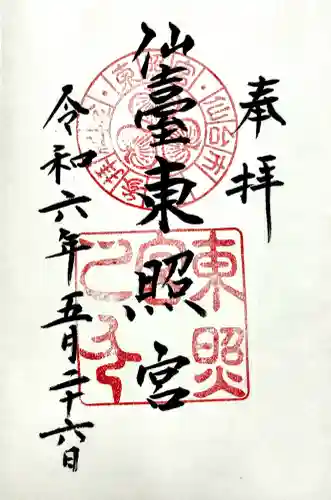 奉拝
仙臺東照宮
令和六年五月二十六日
東照
宮
之印